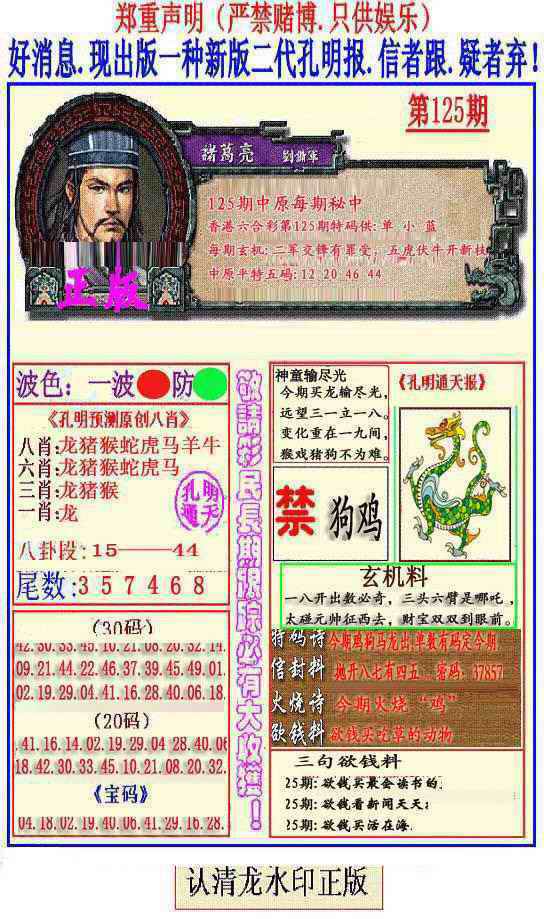 郑重声明（严禁赌博.只供娱乐）
好消息.现出版一种新版二代孔明报.信者跟.疑者弃!
第125期
諸葛亮 劉
125期中原每期秘中
香港六合彩第125期特码供: 单 小 蓝
每期玄机: 二军交锋有罪受；五虎伏牛开新枝
中原平特五码: 12 20 46 44
正版
波色: 一波 防
《孔明预测原创八肖》
八肖:龙猪猴蛇虎马羊牛
六肖:龙猪猴蛇虎马
三肖:龙猪猴
一肖:龙
孔明通天
八卦段: 15——44
尾数:357468
(30码)
42.30.33.45.10.21.08.20.32.14
09.21.44.22.46.37.39.45.49.01
02.19.29.04.41.16.28.40.06.18
(20码)
41.16.14.02.19.29.04 28.40.06
18.42.30.33.45.10.21.08.20.32
《宝码》
04.18.02.19.40.06.41.29.16.28
敬請彩民長期跟踪必有大收獲！
神童输尽光
今期买龙输尽光，
远望三一立一八。
变化重在一九间，
猴戏猪狗不为难。
《孔明通天报》
禁 狗鸡
玄机料
一八开出数必奇，三头六臂是哪吒，
太碰元帅征西去，财宝双双到眼前。
特码诗 今期鸡狗马龙出,单数有码定今期
信封料 抛开八七有四五...密码: 37857
火烧诗 今期火烧“鸡”
欲钱料 欲钱买吃草的动物
三句欲钱料
25期: 欲钱买最会读书的.
25期: 欲钱看新闻天天;
25期: 欲钱买活在海.
认清龙水印正版